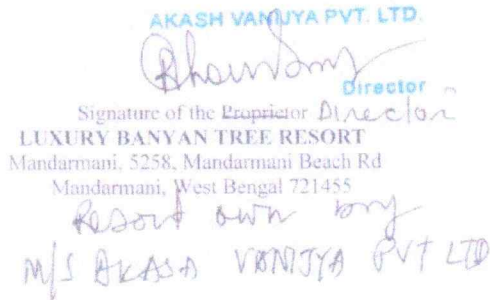 AKASH VANIJYA PVT. LTD.
Director
Signature of the Proprietor Director
LUXURY BANYAN TREE RESORT
Mandarmani, 5258, Mandarmani Beach Rd
Mandarmani, West Bengal 721455
Resort own by
M/S AKASA VANIJYA PVT LTD